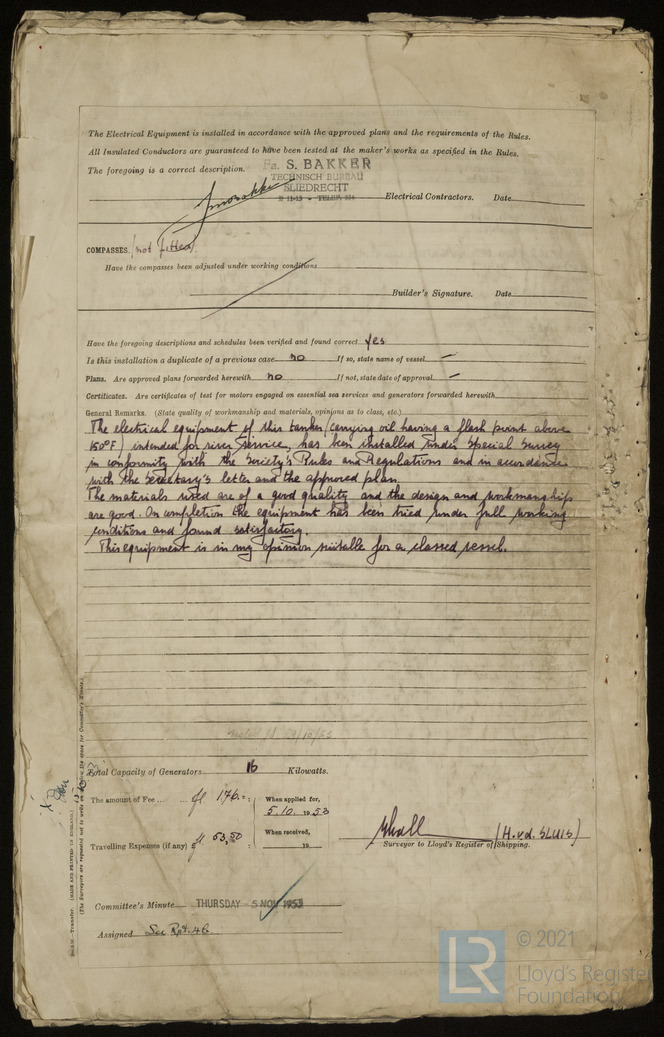 The Electrical Equipment is installed in accordance with the approved plans and the requirements of the Rules.
All Insulated Conductors are guaranteed to have been tested at the maker's works as specified in the Rules.
The foregoing is a correct description.
Fa. S. BAKKER
TECHNISCH BUREAU
SLIEDRECHT
Electrical Contractors. Date
COMPASSES. (not fitted)
Have the compasses been adjusted under working conditions
Builder's Signature. Date
Have the foregoing descriptions and schedules been verified and found correct yes
Is this installation a duplicate of a previous case no If so, state name of vessel —
Plans. Are approved plans forwarded herewith no If not, state date of approval —
Certificates. Are certificates of test for motors engaged on essential sea services and generators forwarded herewith
General Remarks. (State quality of workmanship and materials, opinions as to class, etc.)
The electrical equipment of this tanker (carrying oil having a flash point above
150°F) intended for river service, has been installed under Special Survey
in conformity with the Society's Rules and Regulations and in accordance
with the Secretary's letter and the approved plan.
The materials used are of a good quality and the design and workmanship
are good. On completion the equipment has been tried under full working
conditions and found satisfactory.
This equipment is in my opinion suitable for a classed vessel.
Total Capacity of Generators 16 Kilowatts.
The amount of Fee ... ... fl 176.- :
When applied for,
5.10. 1953
Travelling Expenses (if any) fl. 53,50 :
When received,
19
(H.v.d. SLUIS)
Surveyor to Lloyd's Register of Shipping.
Committee's Minute THURSDAY 5 NOV 1953
Assigned See Rpt. 4b.
(MADE AND PRINTED IN ENGLAND)
(The Surveyors are requested not to write on or below the space for Committee's Minute.)
LR
© 2021
Lloyd's Register
Foundation